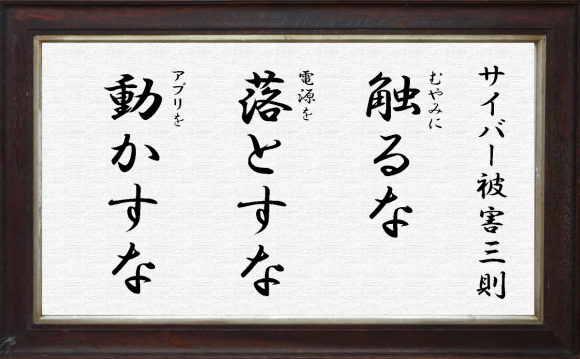 サイバー被害三則
むやみに
触るな
電源を
落とすな
アプリを
動かすな